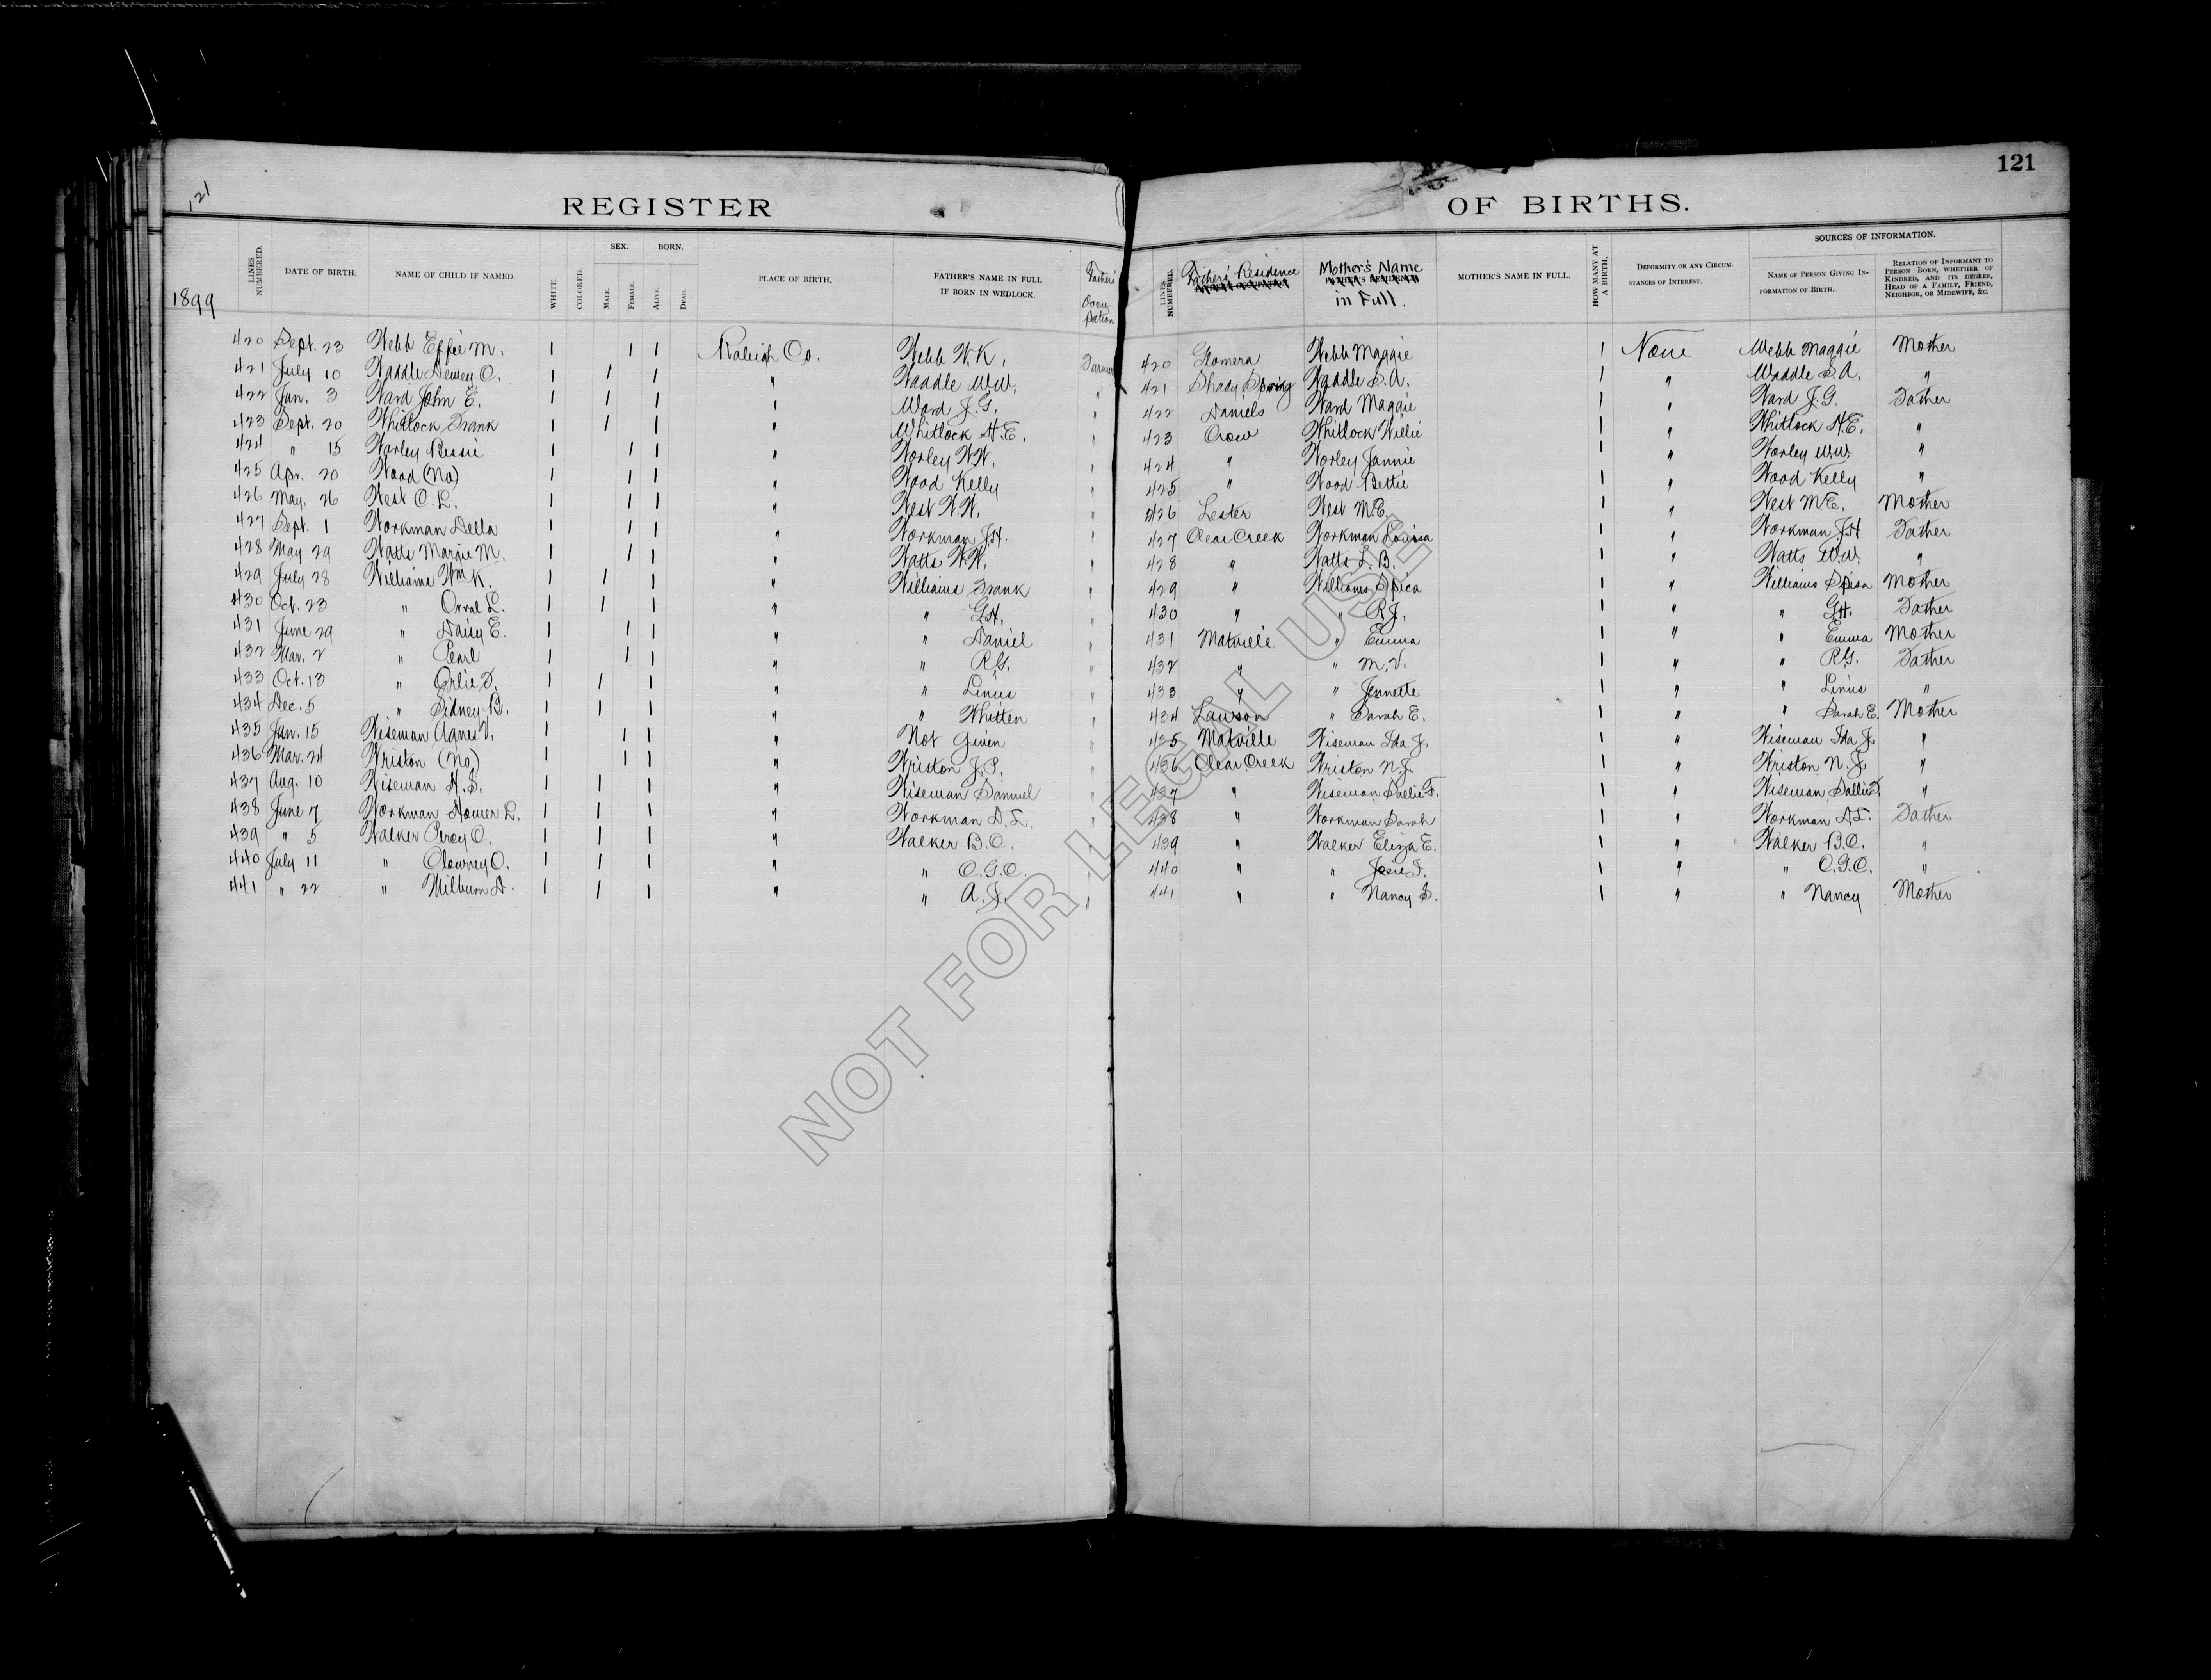 121
REGISTER
OF BIRTHS.
121
1899
LINES NUMBERED.
DATE OF BIRTH.
NAME OF CHILD IF NAMED.
WHITE.
COLORED.
SEX.
MALE.
FEMALE.
BORN.
ALIVE.
DEAD.
PLACE OF BIRTH.
FATHER'S NAME IN FULL
IF BORN IN WEDLOCK.
Father's
Occu
pation
LINES NUMBERED.
Father's Residence
Mother's Name
in Full.
MOTHER'S NAME IN FULL.
HOW MANY AT A BIRTH.
DEFORMITY OR ANY CIRCUM-
STANCES OF INTEREST.
SOURCES OF INFORMATION.
NAME OF PERSON GIVING IN-
FORMATION OF BIRTH.
RELATION OF INFORMANT TO
PERSON BORN, WHETHER OF
KINDRED, AND ITS DEGREE,
HEAD OF A FAMILY, FRIEND,
NEIGHBOR, OR MIDWIFE, &C.
420 Sept. 23 Webb Effie M. 1 1 1 Raleigh Co. Webb W.K. Farmer 420 Webb Maggie 1 None Webb Maggie Mother
421 July 10 Waddle Dewey C. 1 1 1 " Waddle W.W. " 421 Shady Spring Waddle S.A. 1 " Waddle S.A. "
422 Jan. 3 Ward John E. 1 1 1 " Ward J.G. " 422 Daniels Ward Maggie 1 " Ward J.G. Father
423 Sept. 20 Whitlock Frank 1 1 1 " Whitlock H.E. " 423 Crow Whitlock Willie 1 " Whitlock H.E. "
424 " 15 Worley Bessie 1 1 1 " Worley W.W. " 424 " Worley Jannie 1 " Worley W.W. "
425 Apr. 20 Wood (No) 1 1 1 " Wood Kelly " 425 " Wood Bettie 1 " Wood Kelly "
426 May. 26 West O.L. 1 1 1 " West W.W. " 426 Lester West M.E. 1 " West M.E. Mother
427 Sept. 1 Workman Della 1 1 1 " Workman J.H. " 427 Clear Creek Workman Louisa 1 " Workman J.H Father
428 May 29 Watts Margie M. 1 1 1 " Watts W.W. " 428 " Watts L.B. 1 " Watts W.W. "
429 July 28 Williams Wm K. 1 1 1 " Williams Frank " 429 " Williams 1 " Williams Mother
430 Oct. 23 " Orval L. 1 1 1 " " G.H. " 430 " " R.J. 1 " " G.H. Father
431 June 29 " Daisy E. 1 1 1 " " Daniel " 431 Matville " Emma 1 " " Emma Mother
432 Mar. 2 " Pearl 1 1 1 " " R.G. " 432 " " M.V. 1 " " R.G. Father
433 Oct. 13 " Orlie 1 1 1 " " Linus " 433 " " Jennette 1 " " Linus "
434 Dec. 5 " Sidney B. 1 1 1 " " Whitten " 434 Lawson " Sarah E. 1 " " Sarah E. Mother
435 Jan. 15 Wiseman Agnes V. 1 1 1 " Not Given " 435 Matville Wiseman Ida J. 1 " Wiseman Ida J. "
436 Mar. 24 Wriston (No) 1 1 1 " Wriston J.P. " 436 Clear Creek Wriston N.J. 1 " Wriston N.J. "
437 Aug. 10 Wiseman H.S. 1 1 1 " Wiseman Samuel " 437 " Wiseman Sallie F. 1 " Wiseman Sallie F. "
438 June 7 Workman Homer L. 1 1 1 " Workman " 438 " Workman Sarah 1 " Workman Father
439 " 5 Walker Percy O. 1 1 1 " Walker B.C. " 439 " Walker Eliza E. 1 " Walker B.C. "
440 July 11 " O. 1 1 1 " " " 440 " " Josie 1 " " "
441 " 22 " Milburn 1 1 1 " " A.J. " 441 " " Nancy S. 1 " " Nancy Mother
NOT FOR LEGAL USE